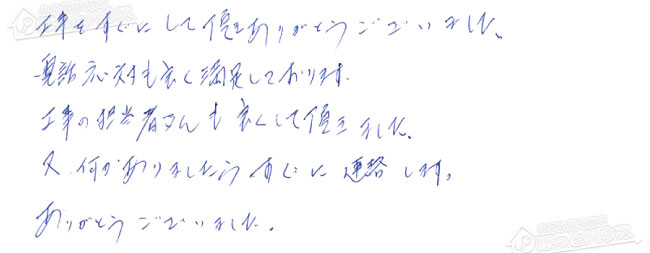 工事を すぐにして頂きありがとうございました。
電話応対も良く満足しております。
工事の担当者さんも良くして頂きました。
又、何かありましたらすぐに連絡します。
ありがとうございました。